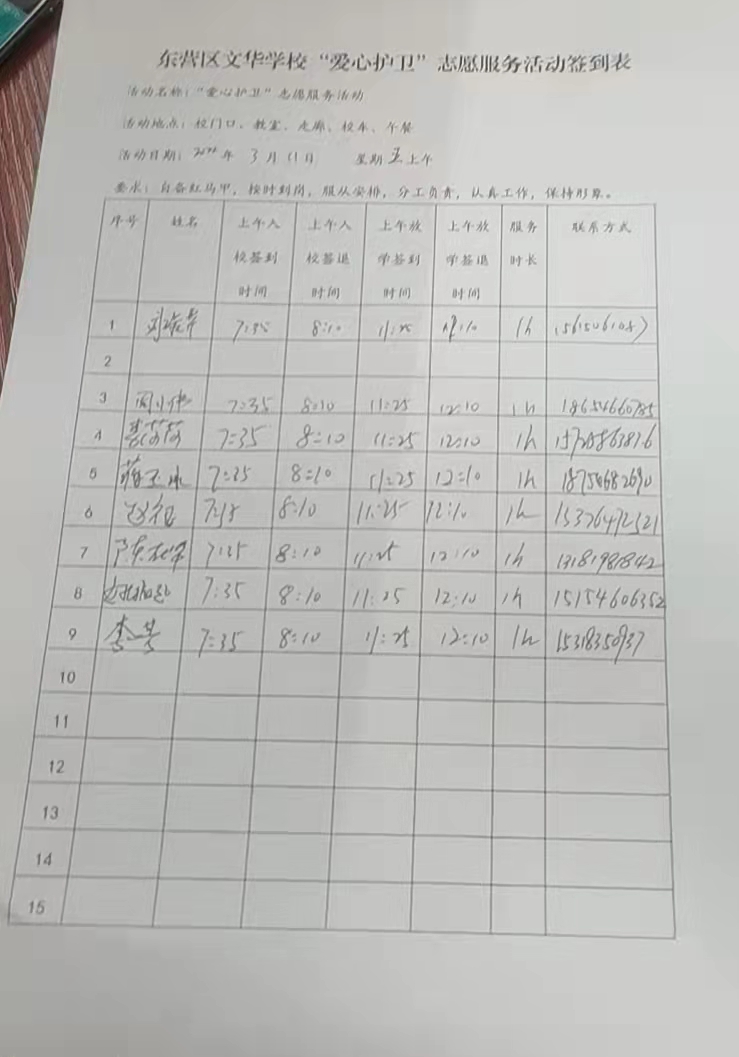 东营区文华学校“爱心护卫”志愿服务活动签到表
活动名称：“爱心护卫”志愿服务活动
活动地点：校门口、教室、走廊、校车、午餐
活动日期：2022年 3月11日 星期五上午
要求：自备红马甲，按时到岗，服从安排，分工负责，认真工作，保持形象。
序号 姓名 上午入校签到时间 上午入校签退时间 上午放学签到时间 上午放学签退时间 服务时长 联系方式
1 7:35 8:10 11:25 12:10 1h
2
3 周小伟 7:35 8:10 11:25 12:10 1h 18654660785
4 7:35 8:10 11:25 12:10 1h
5 7:35 8:10 11:25 12:10 1h 18754682690
6 8:10 11:25 12:10 1h 15376472521
7 7:35 8:10 11:25 12:10 1h 13181981842
8 7:35 8:10 11:25 12:10 1h 15154606352
9 7:35 8:10 11:25 12:10 1h 15318350937
10
11
12
13
14
15